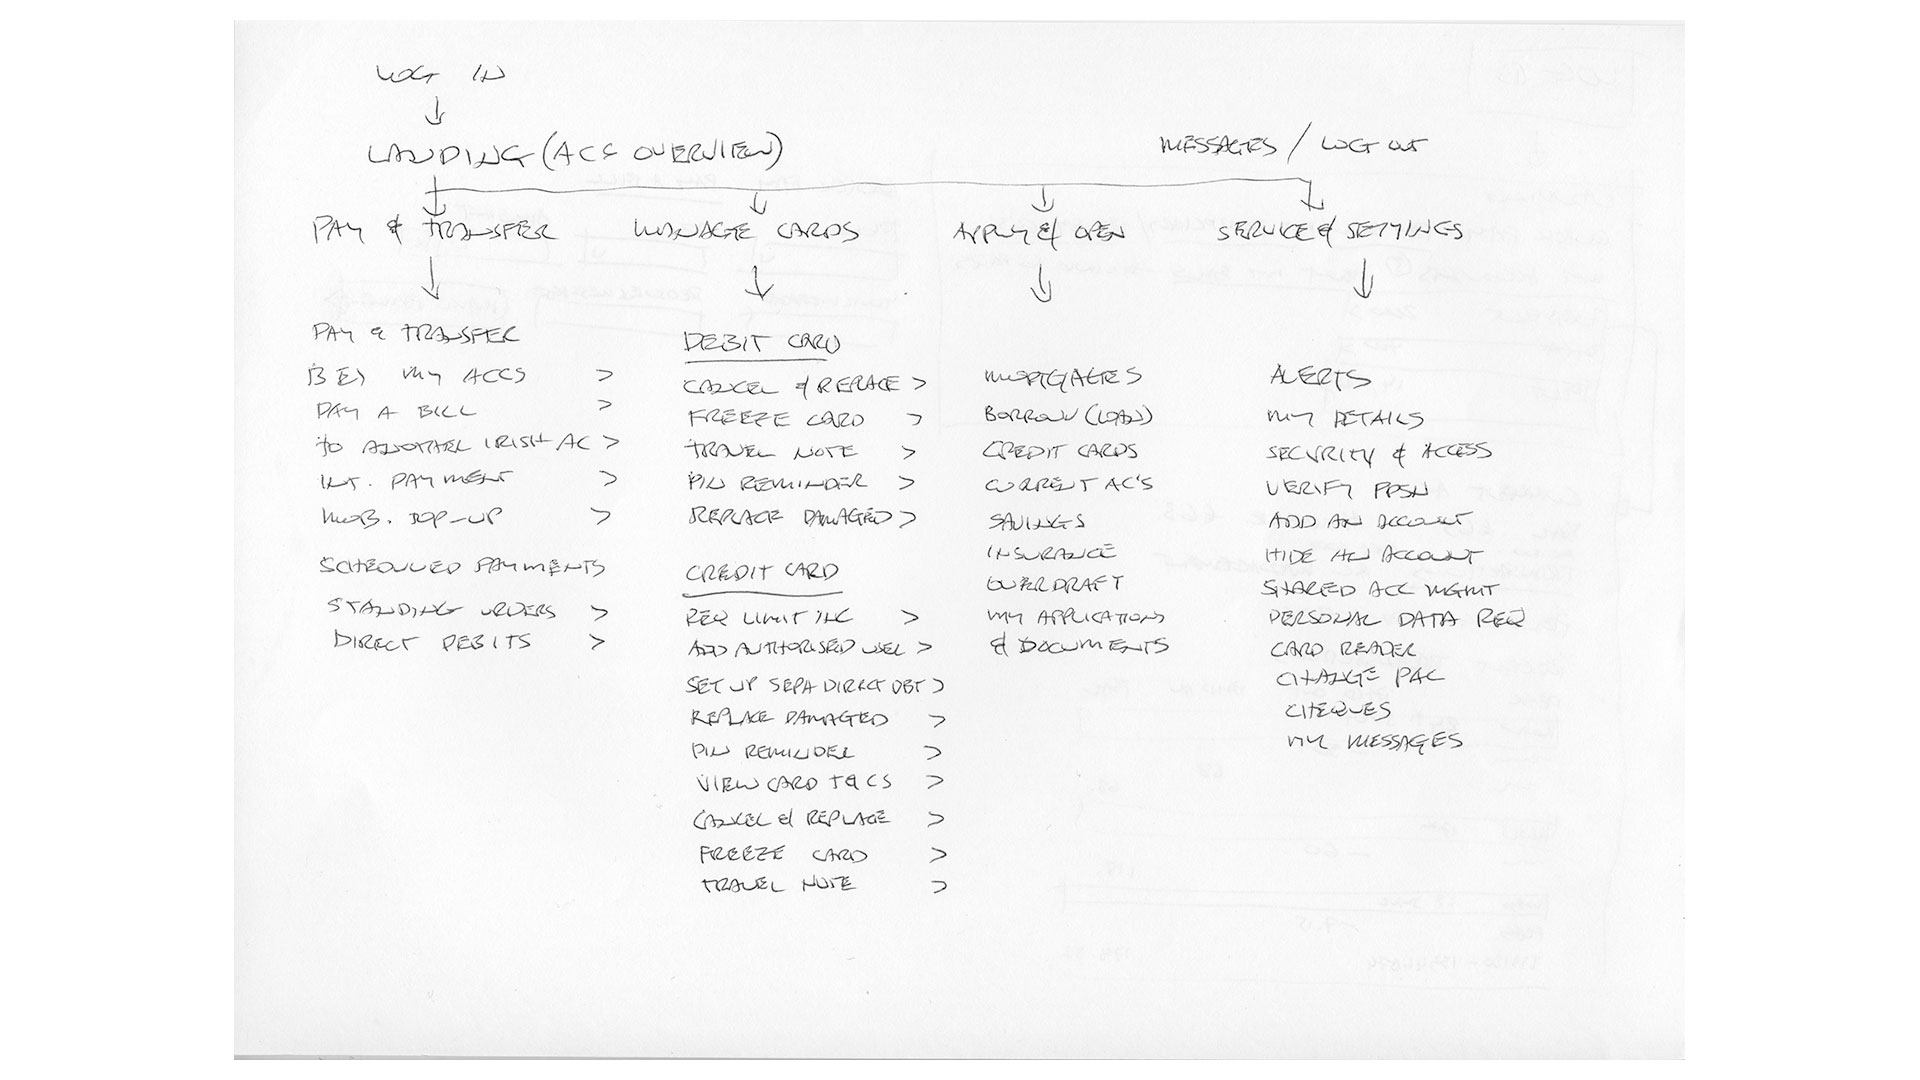 LOG IN
LANDING (ACS OVERVIEW)
MESSAGES / LOG OUT
PAY & TRANSFER
MANAGE CARDS
APPLY & OPEN
SERVICE & SETTINGS
PAY & TRANSFER
MY ACCS >
PAY A BILL >
TO ANOTHER IRISH AC >
INT. PAYMENT >
MOB. TOP-UP >
SCHEDULED PAYMENTS
STANDING ORDERS >
DIRECT DEBITS >
DEBIT CARD
CANCEL & REPLACE >
FREEZE CARD >
TRAVEL NOTE >
PIN REMINDER >
REPLACE DAMAGED >
CREDIT CARD
REQ LIMIT INC >
ADD AUTHORISED USER >
SET UP SEPA DIRECT DBT >
REPLACE DAMAGED >
PIN REMINDER >
VIEW CARD T&CS >
CANCEL & REPLACE >
FREEZE CARD >
TRAVEL NOTE >
MORTGAGES
BORROW (LOAN)
CREDIT CARDS
CURRENT AC'S
SAVINGS
INSURANCE
OVERDRAFT
MY APPLICATIONS
& DOCUMENTS
ALERTS
MY DETAILS
SECURITY & ACCESS
VERIFY PPSN
ADD AN ACCOUNT
HIDE AN ACCOUNT
SHARED ACC MGMT
PERSONAL DATA REQ
CARD READER
CHANGE PAC
CHEQUES
MY MESSAGES